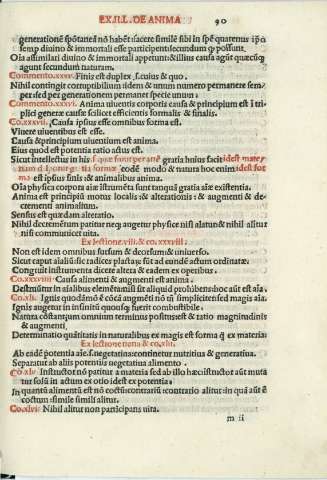 EX.II.L. DE ANIMA 90
generatione spõtaneã nõ habẽt ifacere simile sibi in spẽ quatenus ip̃o
semp diuino & immortali esse participent secundum q̃ possunt.
Oia assimilari diuino & immortali appetunt: & illius causa agũt quæcũq̃
agunt secundum naturam.
Commento.xxxv. Finis est duplex .s. cuius & quo.
Nihil contingit corruptibilium idem & unum numero permanere sem-
per sed per generationem permanet specie.
Commento.xxxvi. Anima uiuentis corporis causa & principium est i tri
plici genere causæ scilicet efficientis formalis & finalis.
Co.xxxvii. Causa ipsius esse omnibus forma est.
Viuere uiuentibus est esse.
Causa & principium uiuentium est anima.
Eius quod est potentia ratio actus est.
Sicut intellectus in his gratia huius facit idest mate
eodẽ modo & natura hoc enim idest for
est ipsius finis & animalibus anima.
Oĩa physica corpora aĩæ instrumẽta sunt tanquã gratia aĩæ existentia.
Anima est principiũ motus localis: & alterationis: & augmenti & de-
crementi animalium.
Sensus est quædam alteratio.
Nihil decrementum patitur neq̃ augetur physice nisi alatur & nihil alitur
nisi communicet uita.
Ex lectione.viii. & co.xxxviii.
Non est idem omnibus sursum & deorsum & uniuerso.
Sicut caput aĩaliũ sic radices plãtaɤ: sũt ad eundẽ actum ordinatæ.
Congruit instrumenta dicere altera & eadem ex operibus.
Co.xxxviii Causa alimenti & augmenti est anima.
Co.xli. Ignis quodãmõ ẽ cõcã augmẽti nõ tñ simpliciter sed magis aĩa.
Ignis augetur in infinitũ quousq̃ fuerit combustibile.
Natura cõstantium omnium terminus positus est & ratio magnitudinis
& augmenti.
Determinatio quãtitatis in naturalibus ex magis est forma q̃ ex materia
Ex lectione nona & co.xliii.
Ab eadẽ potentia aĩe.f. uegetatiua: continetur nutritiua & generatiua.
Separatur ab aliis potentiis uegetatiua alimento.
Co.xlv Instructor nõ patitur a materia sed ab illo hæc: istructor aũt muta
tur solũ in actum ex otio idest ex potentia.
In quantũ alimentũ est nõ coctũ: contrariũ: contrario alitur: in quã aũt ẽ
coctum: simile simili alitur.
Co.xlvi. Nihil alitur non participans uita.
m ii